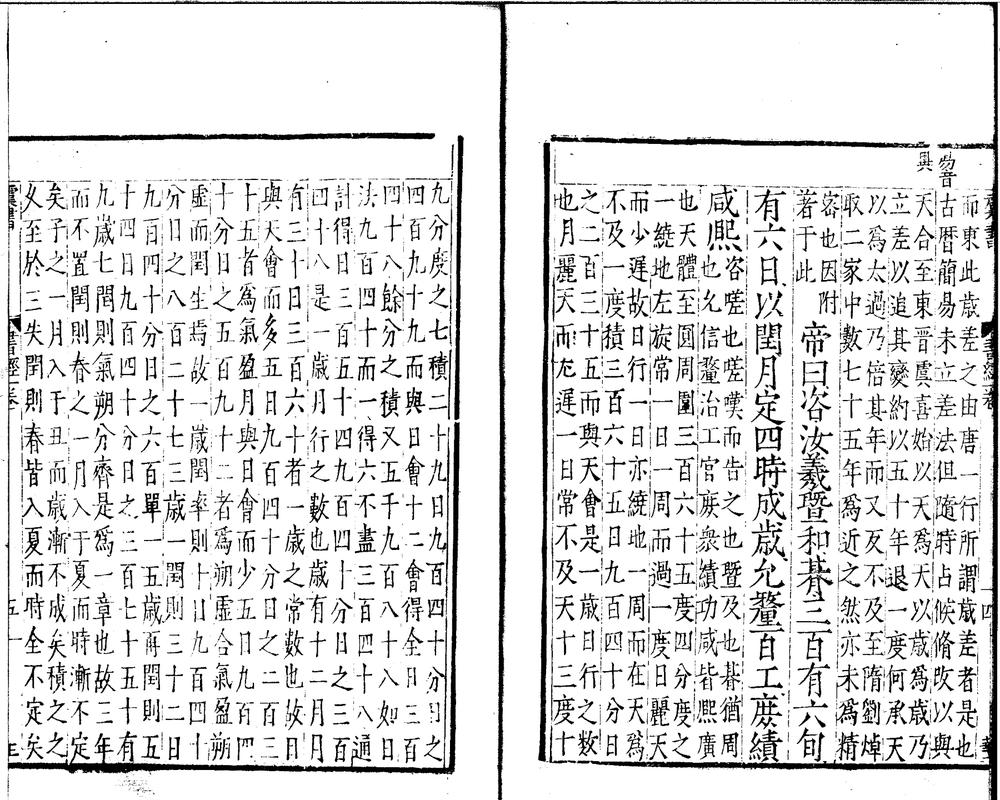 而東此歲差之由唐一行所謂歲差者是也
古曆簡易未立差法但隨時占候脩改以與
天合至東晉虞喜始以天爲天以歲爲歲乃
立差以追其變約以五十年退一度何承天
以爲太過乃倍其年而又反不及至隋劉焯
取二家中數七十五年爲近之然亦未爲精
密也因附
著于此
帝曰咨汝羲暨和朞三百有六旬
有六日以閏月定四時成歲允釐百工庶績
咸熙
咨嗟也嗟嘆而告之也暨及也朞猶周
也允信釐治工官庶衆績功咸皆熙廣
也天體至圓周圍三百六十五度四分度之
一繞地左旋常一日一周而過一度日麗天
而少遲故日行一日亦繞地一周而在天爲
不及一度積三百六十五日九百四十分日
之二百三十五而與天會是一歲日行之數
也月麗天而尤遲一日常不及天十三度十
九分度之七積二十九日九百四十分日之
四百九十九而與日會十二會得全日三百
四十八餘分之積又五千九百八十八如日
法九百四十而一得六不盡三百四十八通
計得日三百五十四九百四十分日之三百
四十八是一歲月行之數也歲有十二月月
有三十日三百六十者一歲之常數也故日
與天會而多五日九百四十分日之二百三
十五者爲氣盈月與日會而少五日九百四
十分日之五百九十二者爲朔虛合氣盈朔
虛而閏生焉故一歲閏率則十日九百四十
分日之八百二十七三歲一閏則三十二日
九百四十分日之六百單一五歲再閏則五
十四日九百四十分日之三百七十五十有
九歲七閏則氣朔分齊是爲一章也故三年
而不置閏則春之一月入于夏而時漸不定
矣子之一月入于丑而歲漸不成矣積之之
久至於三失閏則春皆入夏而時全不定矣